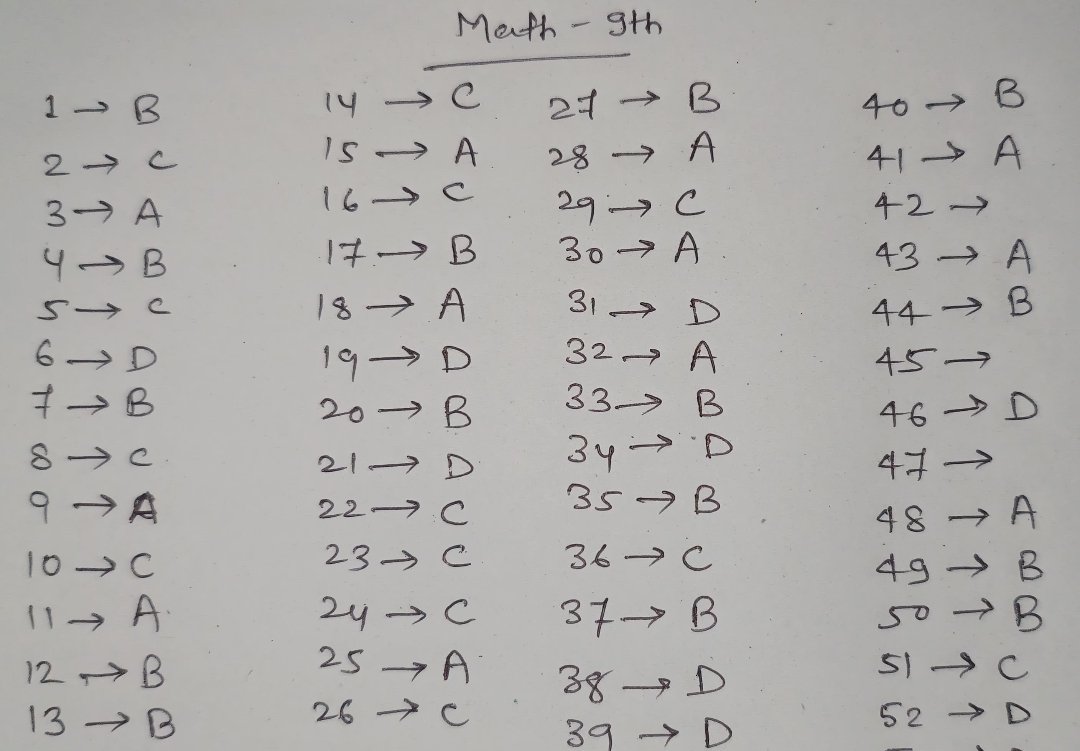 Math - 9th
1 → B
2 → C
3 → A
4 → B
5 → C
6 → D
7 → B
8 → C
9 → A
10 → C
11 → A
12 → B
13 → B
14 → C
15 → A
16 → C
17 → B
18 → A
19 → D
20 → B
21 → D
22 → C
23 → C
24 → C
25 → A
26 → C
27 → B
28 → A
29 → C
30 → A
31 → D
32 → A
33 → B
34 → D
35 → B
36 → C
37 → B
38 → D
39 → D
40 → B
41 → A
42 →
43 → A
44 → B
45 →
46 → D
47 →
48 → A
49 → B
50 → B
51 → C
52 → D